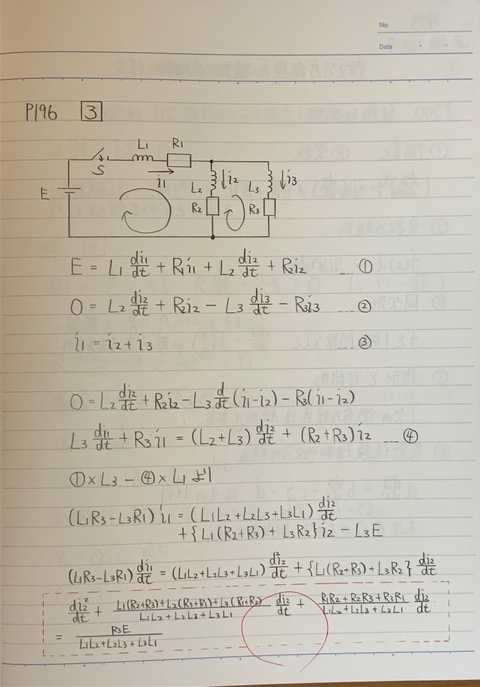 No.
Date
P196 3
L₁ R₁
S i₁ L₂ i₂ L₃ i₃
E R₂ R₃
E = L₁ di₁/dt + R₁i₁ + L₂ di₂/dt + R₂i₂ … ①
0 = L₂ di₂/dt + R₂i₂ − L₃ di₃/dt − R₃i₃ … ②
i₁ = i₂ + i₃ … ③
0 = L₂ di₂/dt + R₂i₂ − L₃ d/dt (i₁−i₂) − R₃(i₁−i₂)
L₃ di₁/dt + R₃i₁ = (L₂+L₃) di₂/dt + (R₂+R₃)i₂ ④
①×L₃ − ④×L₁ より
(L₁R₃−L₃R₁) i₁ = (L₁L₂+L₂L₃+L₃L₁) di₂/dt
+ {L₁(R₂+R₃) + L₃R₂} i₂ − L₃E
(L₁R₃−L₃R₁) di₁/dt = (L₁L₂+L₂L₃+L₃L₁) di₂²/dt + {L₁(R₂+R₃)+L₃R₂} di₂/dt
di₂²/dt + L₁(R₂+R₃)+L₂(R₃+R₁)+L₃(R₁+R₂)/L₁L₂+L₂L₃+L₃L₁ di₂/dt + R₁R₂+R₂R₃+R₃R₁/L₁L₂+L₂L₃+L₃L₁ di₂/dt
= R₃E/L₁L₂+L₂L₃+L₃L₁